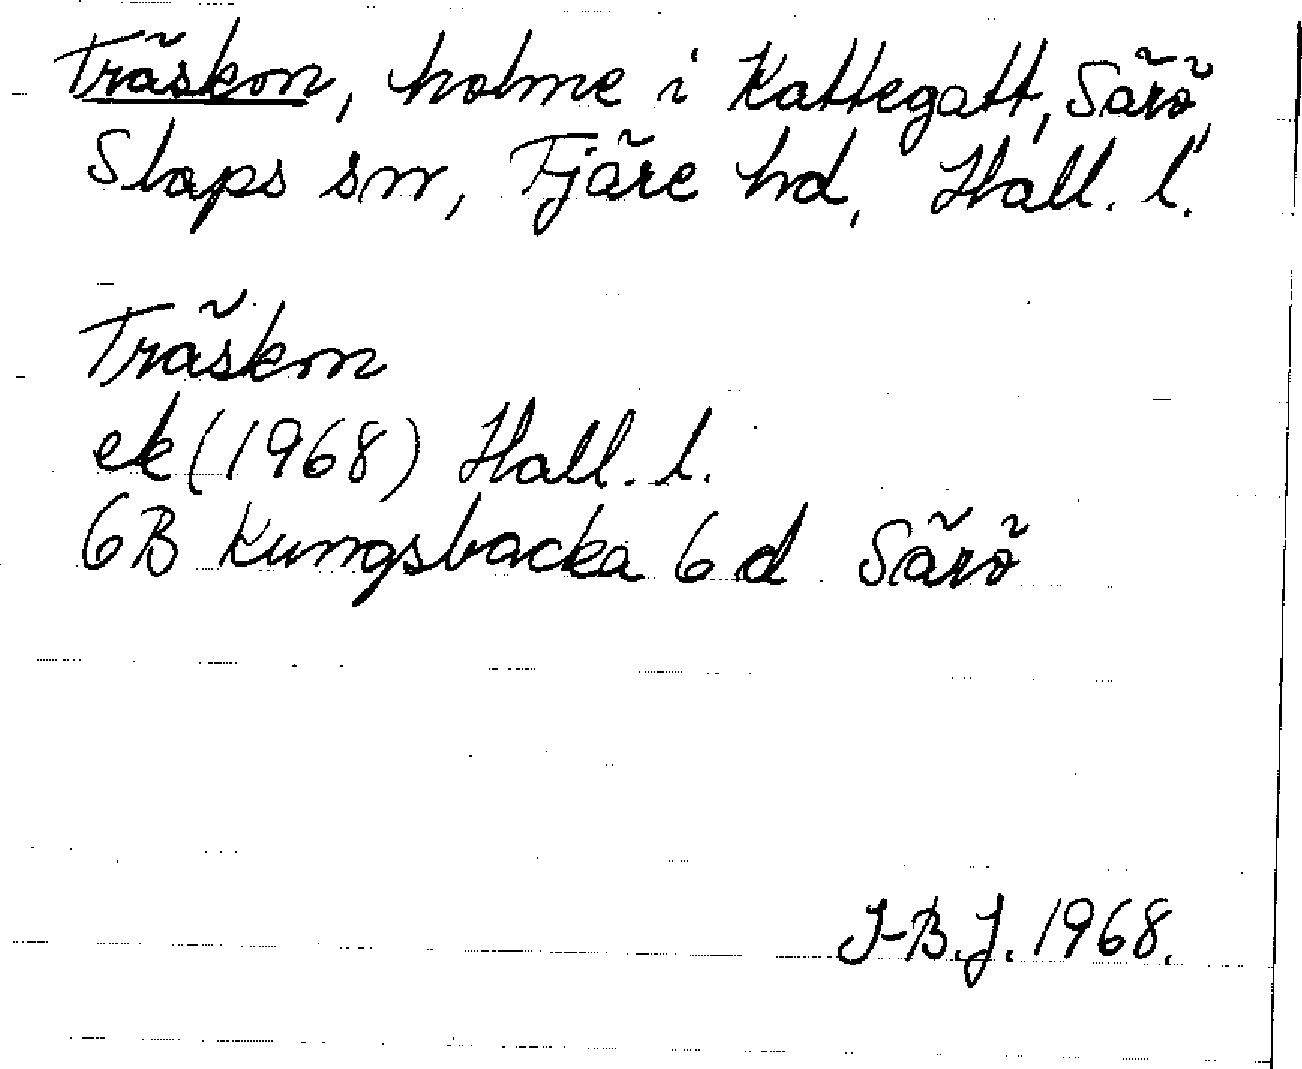 Träskon, holme i Kattegatt, Särö,
Slaps sn, Fjäre hd, Hall. l.
Träskon
ek (1968) Hall. l.
6B Kungsbacka 6 d Särö
I-B.J. 1968.